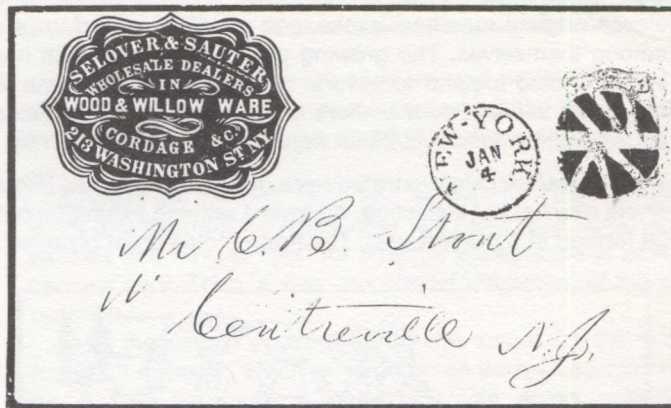 SELOVER & SAUTER
WHOLESALE DEALERS
IN
WOOD & WILLOW WARE
CORDAGE &C.
213 WASHINGTON ST. N.Y.
NEW-YORK
JAN
4
Mr C. B. Stout
Centreville N.J.